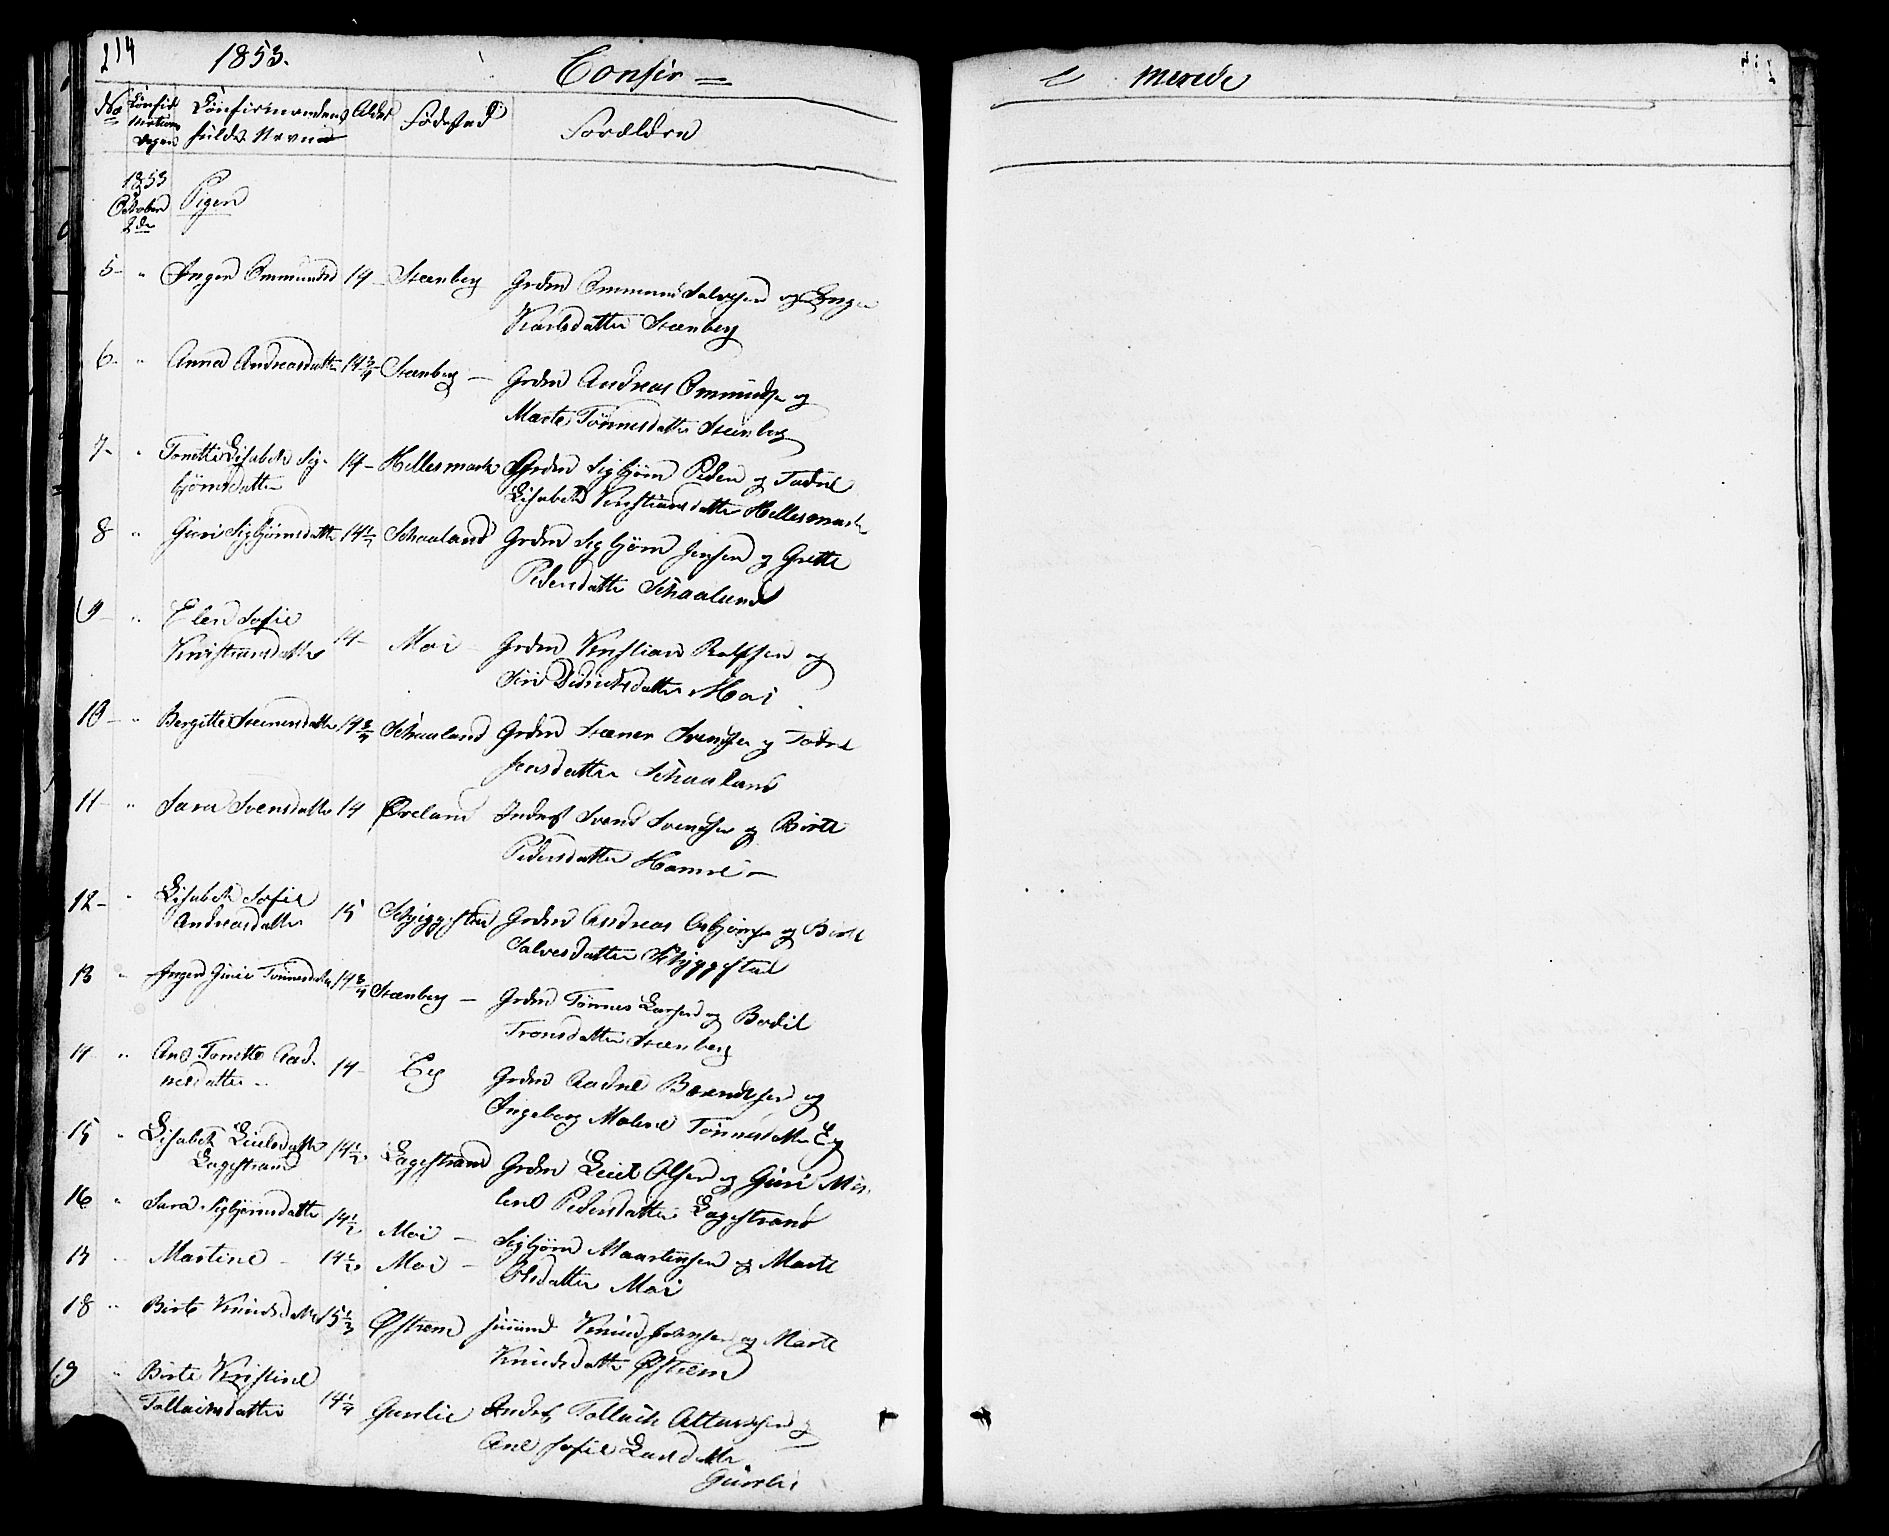 214 1853. Confir=
merede
No Confirmations Dagen Confirmandens fulde Navn Alder Fødested Forældre
1853 October 2de Pigen
5- " Inger Ommundsd 14- Steenberg Grdm Ommund Salvesen og Inger
Karlsdatter Steenberg
6- " Anna Andreasdatter 14 3/4 Steenberg - Grdm Andreas Ommundsen og
Marte Tønnesdatter Steenberg
7- " Tonette Lisabeth Sig- 14- Hellesmark Grdm Sigbjørn Peder og
bjørnsdatter Lisabeth Kristiansdatter Hellesmark
8 " Guri Sigbjørnsdatter 14 1/2 Schaaland Grdm Sigbjørn Jensen og Grette
Pedersdatter Schaaland
9- " Elen Sofie
Kristiansdatter 14- Moi - Grdm Kristian Rolfsen og
Siri Didriksdatter Moi
10- " Bergitte Steenersdatter 14 3/4 Schaaland Grdm Steener Svendsen og Todne
Jensdatter Schaaland
11- " Sara Svensdatter 14 Øreland Inderst Svend Svendsen og Birte
Pedersdatter Hamre -
12- " Lisabeth Sofie
Andreasdatter 15 Schyggestad Grdm Andreas Asbjørnsen og Birte
Salvesdatter Skyggestad
13 " Inger Gurie Tønnesdatter 14 3/4 Steenberg - Grdm Tønnes Larsen og Bodil
Tronsdatter Steenberg
14 " Ane Tonette Aad-
nesdatter 14- Eeg Grdm Aadne Berentsen og
Ingeborg Malene Tønnesdatter Eeg
15 " Lisabeth Leielsdatter 14 1/2 Lagestrand Grdm Leiel Olsen og Guri Ma-
Lagestrand lene Pedersdatter Lagestrand
16 " Sara Sigbjørnsdatter 14 1/2 Moi - Sigbjørn Maartensen og Marte
17 " Martine - 14 1/2 Moi - Olsdatter Moi
18 " Birte Knudsdatter 15 1/3 Østrem Knud og Marte
Knudsdatter Østrem
19 " Birte Kristine
Tollaksdatter 14 1/4 Gunlie Inderst Tollack og
Ane Sofie Larsdatter
Gunlie